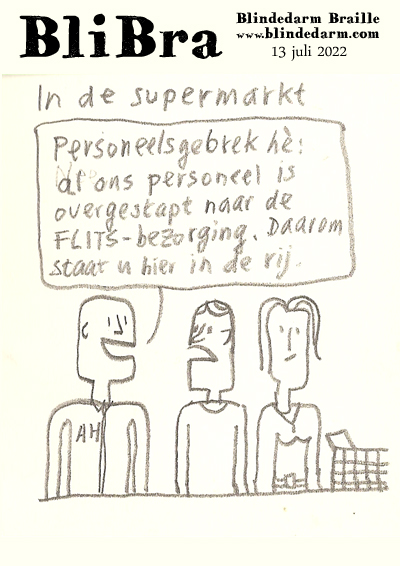 BliBra
Blindedarm Braille
www.blindedarm.com
13 juli 2022
In de supermarkt
Personeelsgebrek hè!
Al ons personeel is
overgestapt naar de
FLITS-bezorging. Daarom
staat u hier in de rij.
AH